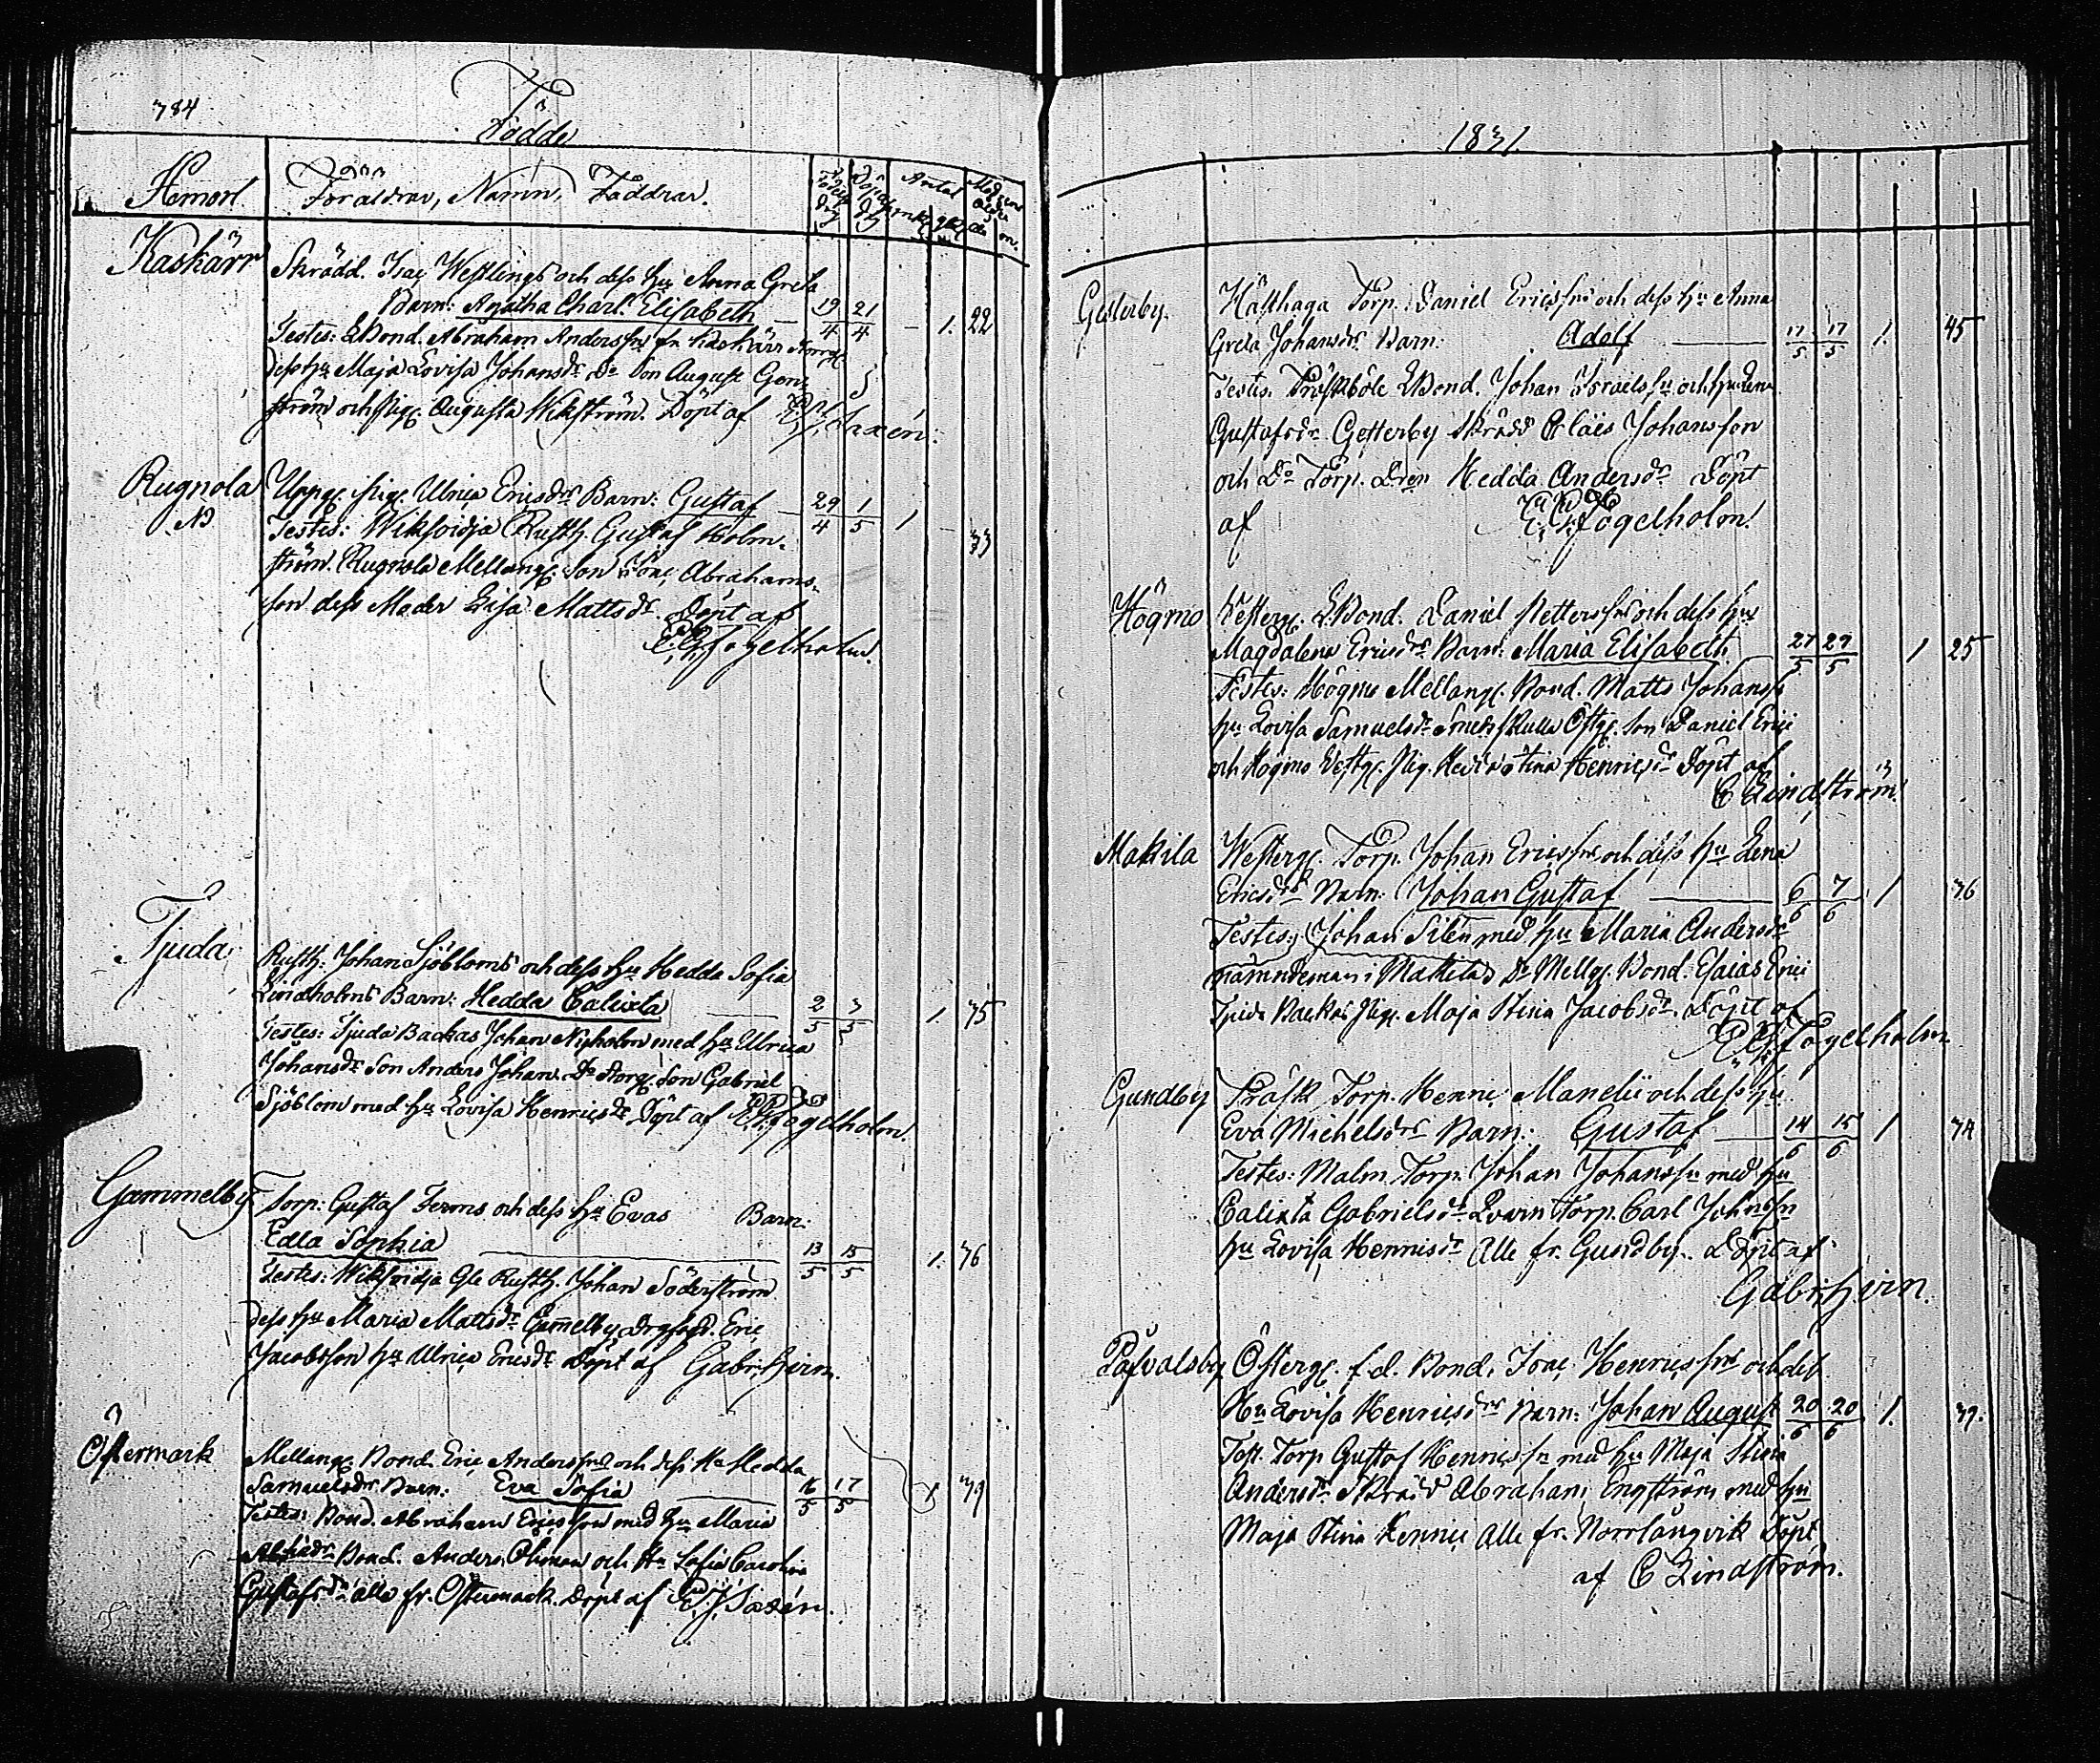 784
Födde
Hemort
Föräldrar, Namn, Faddrar.
Födelse dag
Döpelse dag
Antal
mk. qk.
Modrens ålder
Kaskärr
Skrädd. Isac Westlings och dess hu Anna Greta
Barn: Agatha Charl. Elisabeth 19/4 21/4 - 1. 22
Testes: LBond. Abraham Anderssn fr Kaskärr Norrg.
dess hu Maja Lovisa Johansdr Do Son August Gen-
ström och Pig. Augusta Wikström. Döpt af Saxén.
Rugnola
Uppg. Pig. Ulrica Ericsdrs Barn: Gustaf 29/4 1/5 1 33
Testes: Wiksvidja Rusth. Gustaf Holm-
ström. Rugnola Mellang. Son Isac Abrahams-
son dess Moder Lisa Mattsdr Döpt af
Fogelholm.
Tjuda
Rusth: Johan Sjöbloms och dess hu Hedda Sofia
Lindholms Barn: Hedda Calixta 2/5 3/5 1. 35
Testes: Tjuda Backas Johan Nyholm med hu Ulrica
Johansdr Son Anders Johan. Do Storg. Son Gabriel
Sjöblom med hu Lovisa Henricsdr Döpt af Fogelholm.
Gammelby
Torp: Gustaf Ferms och dess hu Evas Barn:
Edla Sophia 13/5 15/5 1. 36
Testes: Wiksvidja Gle Rusth. Johan Söderström
dess hu Maria Mattsdr Gammelby Eric
Jacobsson hu Ulrica Ericsdr Döpt af Gabr. Hirn.
Östermark
Mellang. Bond. Eric Anderssns och dess Hu Hedda
Samuelsdrs Barn: Eva Sofia 16/5 17/5 1 39
Testes: Bond. Abraham Ericsson med hu Maria
Bond. Anders Öhman och Hu Sofia Carolina
Gustafsdr alla fr. Östermark. Döpt af Saxén.
1831.
Gesterby.
Hälthaga Torp. Daniel Ericssns och dess hu Anna
Greta Johansdrs Barn: Adolf 17/5 17/5 1. 45
Testes. Pröstböle LBond. Johan Israelssn och hu Lena
Gustafsdr Gesterby Skrädd Claës Johansson
och Do Torp. Dren Hedda Andersdr Döpt
af Fogelholm.
Högmo
Westerg. LBond. Daniel Petterssns och dess hus
Magdalena Ericsdrs Barn: Maria Elisabeth 27/5 29/5 1 25
Testes: Högmo Mellang. Bond. Matts Johanss
hu Lovisa Samuelsdr Östg. Son Daniel Eric
och Högmo Westg. Pig. Hedda Stina Henricsdr Döpt af
C Lindström.
Makila
Westerg. Torp. Johan Ericssns och dess hu Lena
Ericsdrs Barn: Johan Gustaf 6/6 7/6 1 36
Testes: Johan Silén med hu Maria Andersdr
nämndeman i Makila Do Mellg. Bond. Esaias Eric
Tjuda Backas Pig. Maja Stina Jacobsdr. Döpt af
Fogelholm
Gundby
Präst. Torp. Henric Mandlii och dess hu
Eva Michelsdrs Barn: Gustaf 14/6 15/6 1 34
Testes: Malm Torp. Johan Johanssn med hu
Calixta Gabrielsdr Torp. Carl Johnssn
hu Lovisa Henricsdr Alle fr. Gundby. Döpt af
Gabr: Hirn.
Påfvalsby
Österg. f.d. Bond. Isac Henricssns och dess
Hu Lovisa Henricsdrs Barn: Johan August 20/6 20/6 1. 39.
Test. Torp Gustaf Henricssn med hu Maja Stina
Andersdr Skrädd Abraham Engström med hu
Maja Stina Henric Alle fr. Norrlångvik Döpt
af C Lindström.